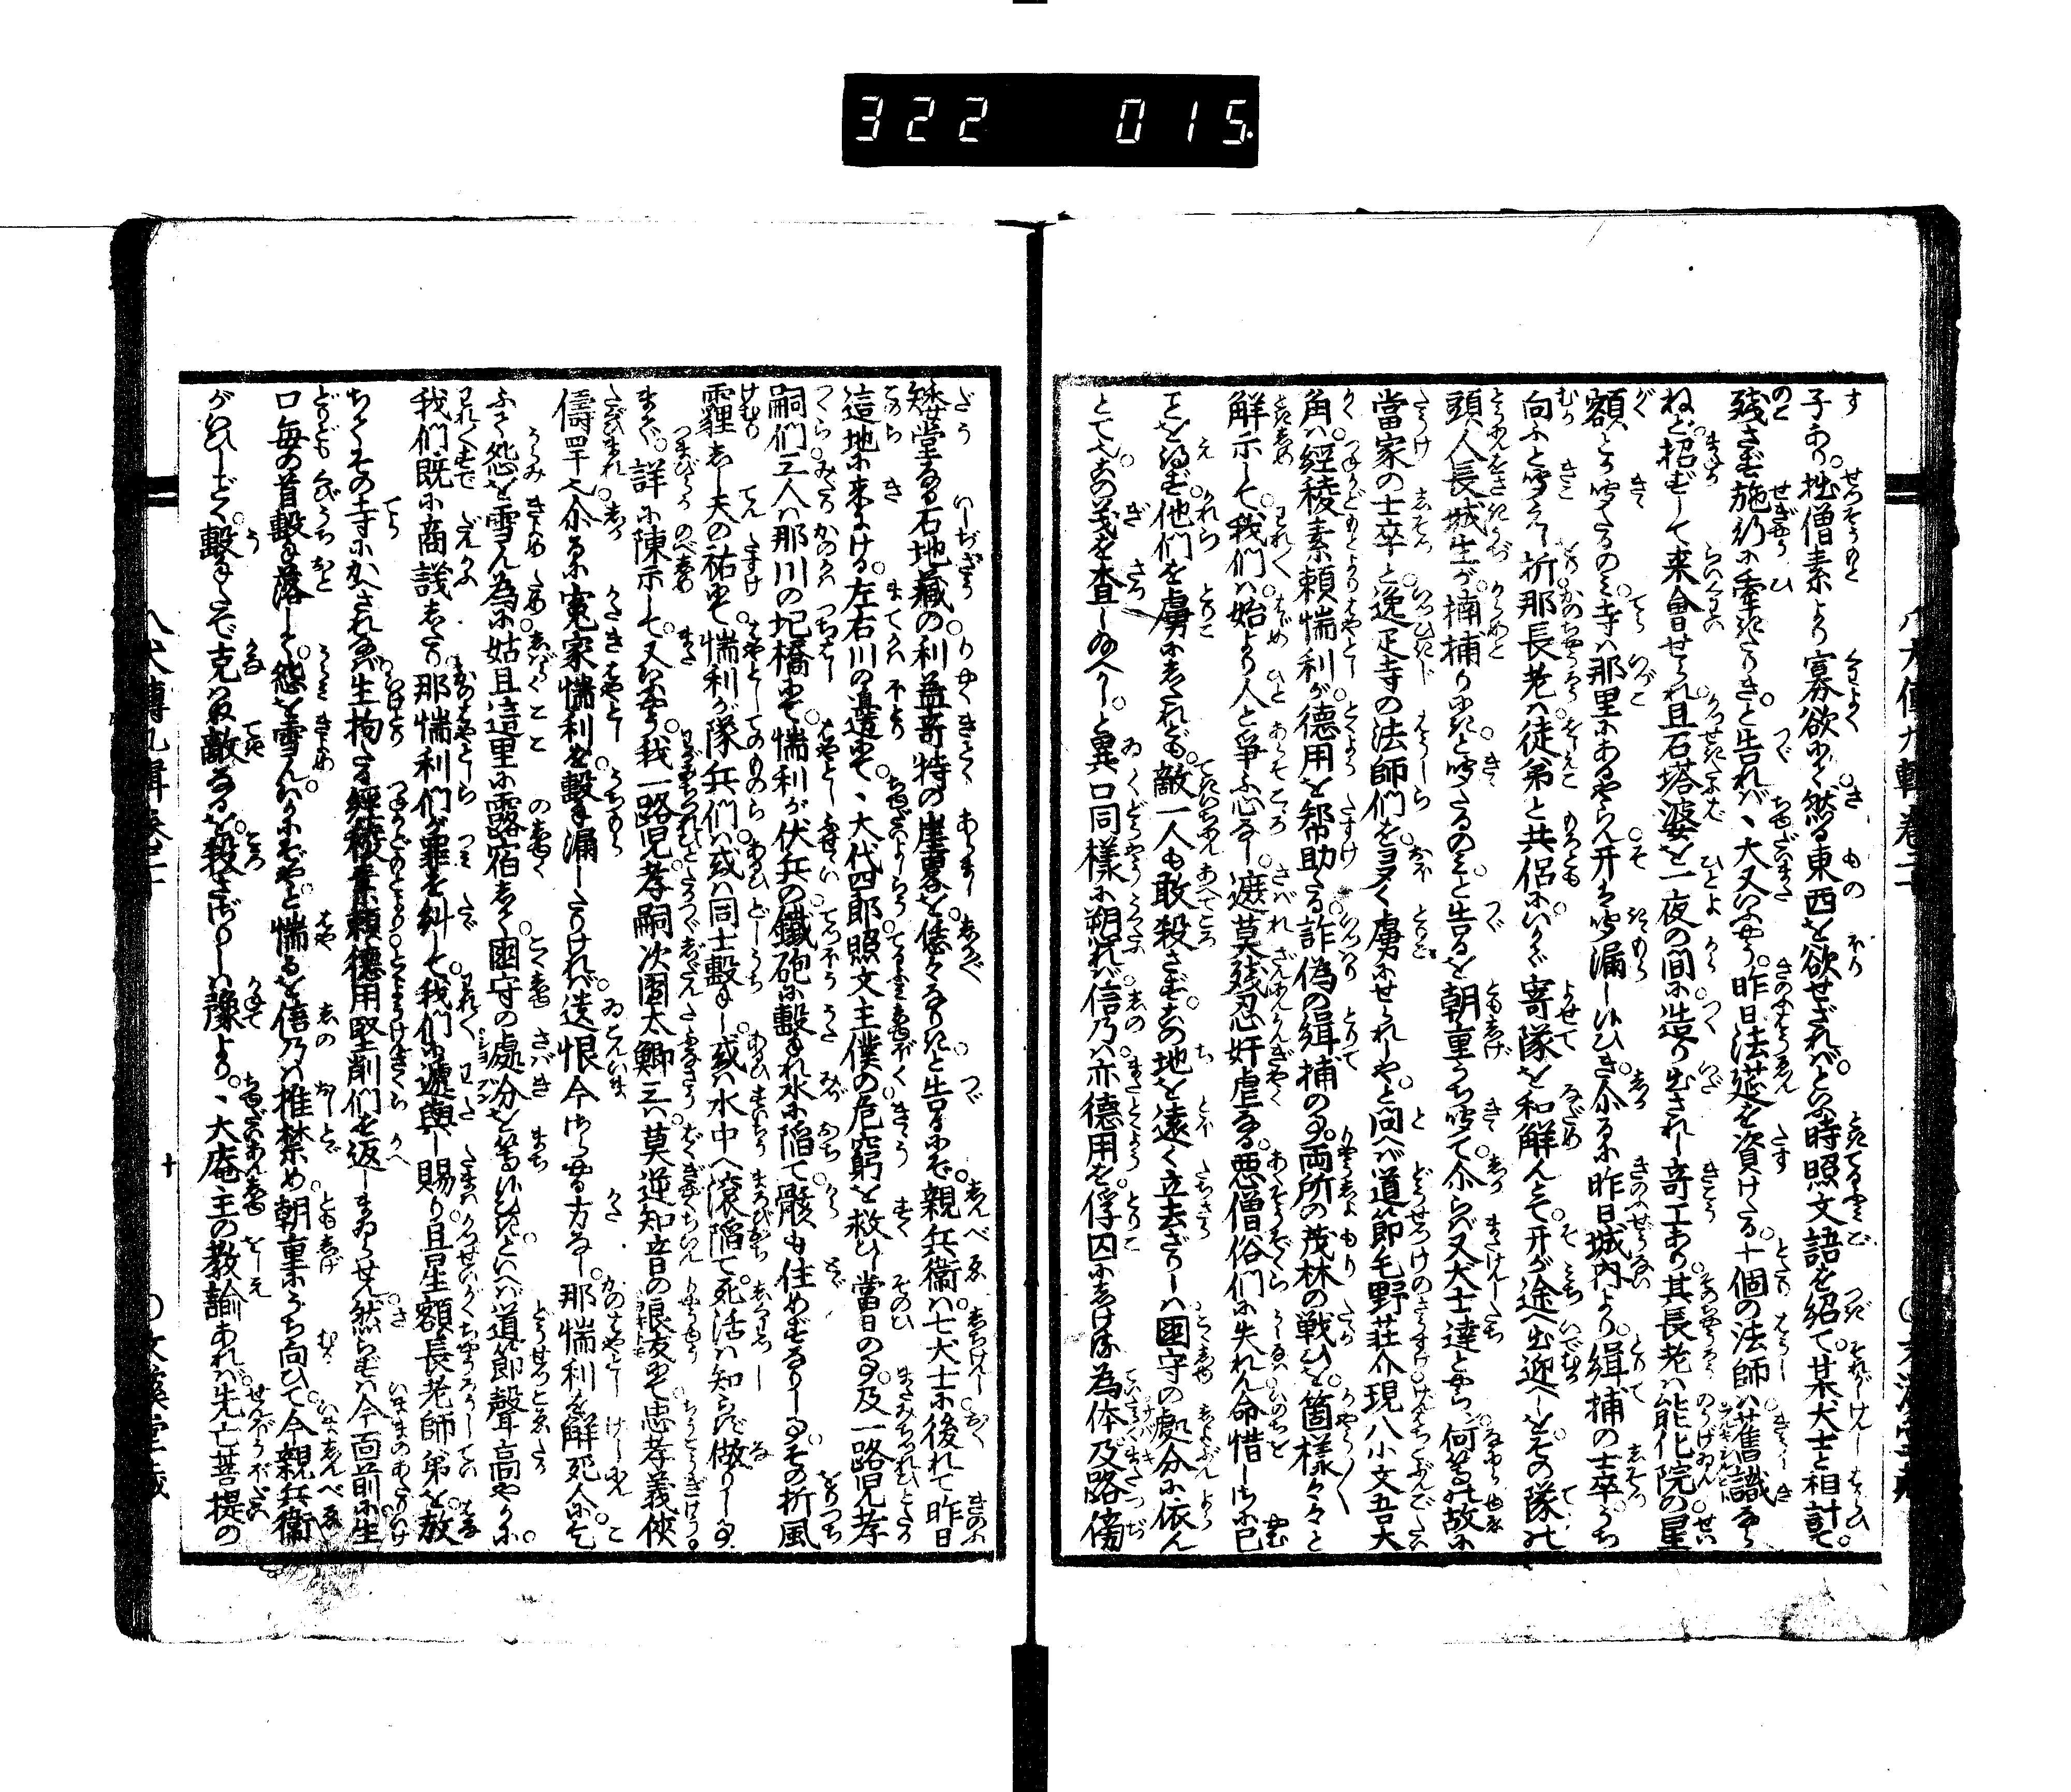 322 015
子あり。拙僧素より寡欲にて。然る東西を欲せざれば。といふ時照文語を紹て。某犬士と相計て。
残さず施行に牽たりき。と告れば、大又いふやう。昨日法莚を資けたる。十個の法師は旧識なら
ねど。招ずして来会せられ。且石塔婆を一夜の間に造り出されし奇工あり。其長老は能化院の星
額とか聞たるのみ。寺は那里にあるやらん。开も聞漏し候ひき。尒るに昨日城内より。緝捕の士卒うち
向ふと聞えて。折那長老は徒弟と共侶に。いかで寄隊を和解んとて。开が途へ出迎へしを。その隊の
頭人長城生が。搦捕りにきと聞たるのみと告るを朝重うち聞て。尒らば又犬士達とやら。何等の故に
当家の士卒と逸疋寺の法師們を。多く虜にせられしや。と問へば道節毛野荘介現八小文吾大
角は。経稜素頼惴利が。徳用を幇助たる。詐偽の緝捕の事。両所の茂林の戦ひを。箇様々々と
解示して。我們は始より人と争ふ心なし。遮莫残忍奸虐なる。悪僧俗們に失れん命惜しさに已
ことを得ず。他們を虜にしたれども。敵一人も敢殺さず。この地を遠く立去ざりしは。国守の処分に依ん
とてなり。この義を査し給へかし。と異口同様に朔れば。信乃は亦徳用を。俘囚にしける為体及路傍
秘堂なる石地蔵の。利益奇特の崖略を。恁々なりきと告るにぞ。親兵衛は。七犬士に後れて昨日
這地に来にける。左右川の辺にて。丶大代四郎照文主僕の。危窮を救ひし当日の事。及一路児孝
嗣們三人は。那川の圯橋にて。惴利が伏兵の鉄砲に撃れ水に陥て。骸も住めずなりし事。その折風
霾しし天の祐にて。惴利が隊兵們は。或は同士撃し。或は水中へ滾陥て。死活は知らず做りし事
まで。詳に陳示して。又いふやう。我一路児孝嗣次団太鯽三は。莫逆知音の眼友にて。忠孝義侠の
儔罕也。尒るに寃家惴利を。撃も漏したりければ。遺恨今に遣る方なし。那惴利を解死人にして
ふかき怨を雪ん為に。姑且這里に露宿して。国守の処分を等候ひにき。といへば道節声高やかに。
我們既に商議したり。那惴利們が罪を糾して。我們に逓与し賜り。且星額長老師弟を放
ちてその寺にかへされなば。生拘たる経稜素頼徳用堅削們を返しまゐらせん。然らずは今面前に。生
口毎の首撃も落して。怨を雪んいかにぞや。と惴るを信乃は推禁め。朝重にうち向ひて。今親兵衛
がいひしごとく。撃まくせで克はぬ敵なるを。殺さゞりしは豫より。丶大庵主の教諭あれば。先亡菩提の
八犬伝九輯巻二十
十
文渓堂蔵